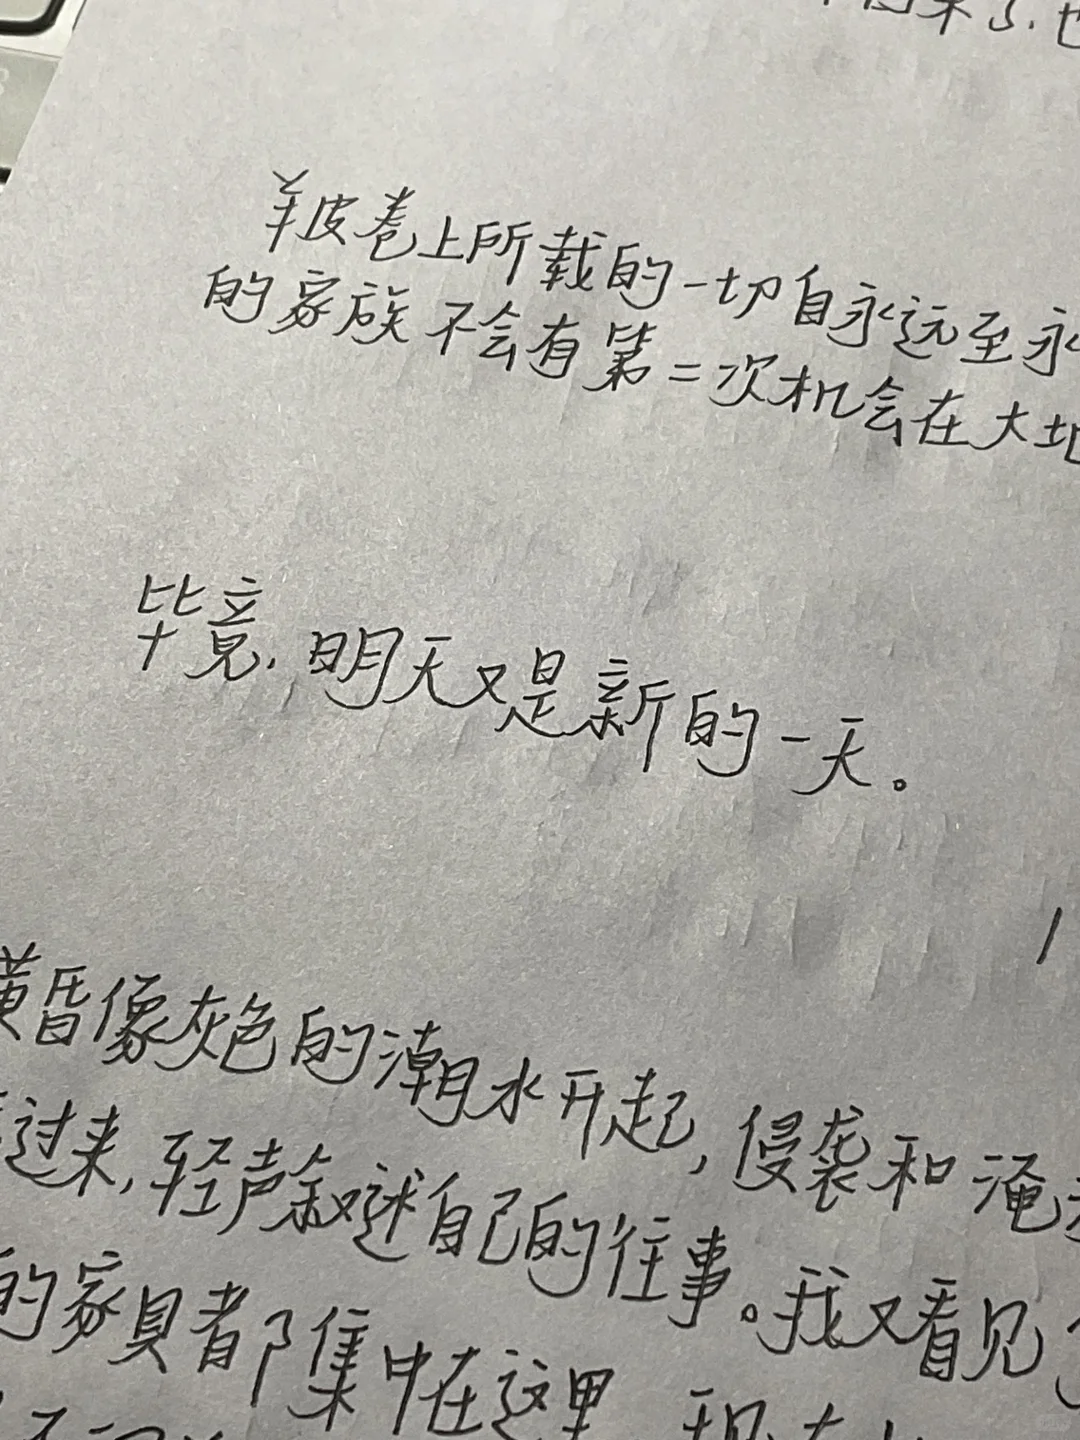 来了.也
羊皮卷上所载的一切自永远至永
的家族不会有第二次机会在大地
毕竟.明天又是新的一天。
黄昏像灰色的潮水升起,侵袭和淹
过来,轻声叙述自己的往事。我又看见
的家具都集中在这里